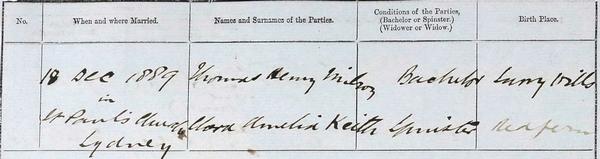 No.
When and where Married.
Names and Surnames of the Parties.
Conditions of the Parties,
(Bachelor or Spinster.)
(Widower or Widow.)
Birth Place.
18 Dec 1889 Thomas Henry Milson Bachelor Surry Hills
in
St Paul's Church Clara Amelia Keith Spinster Redfern
Sydney